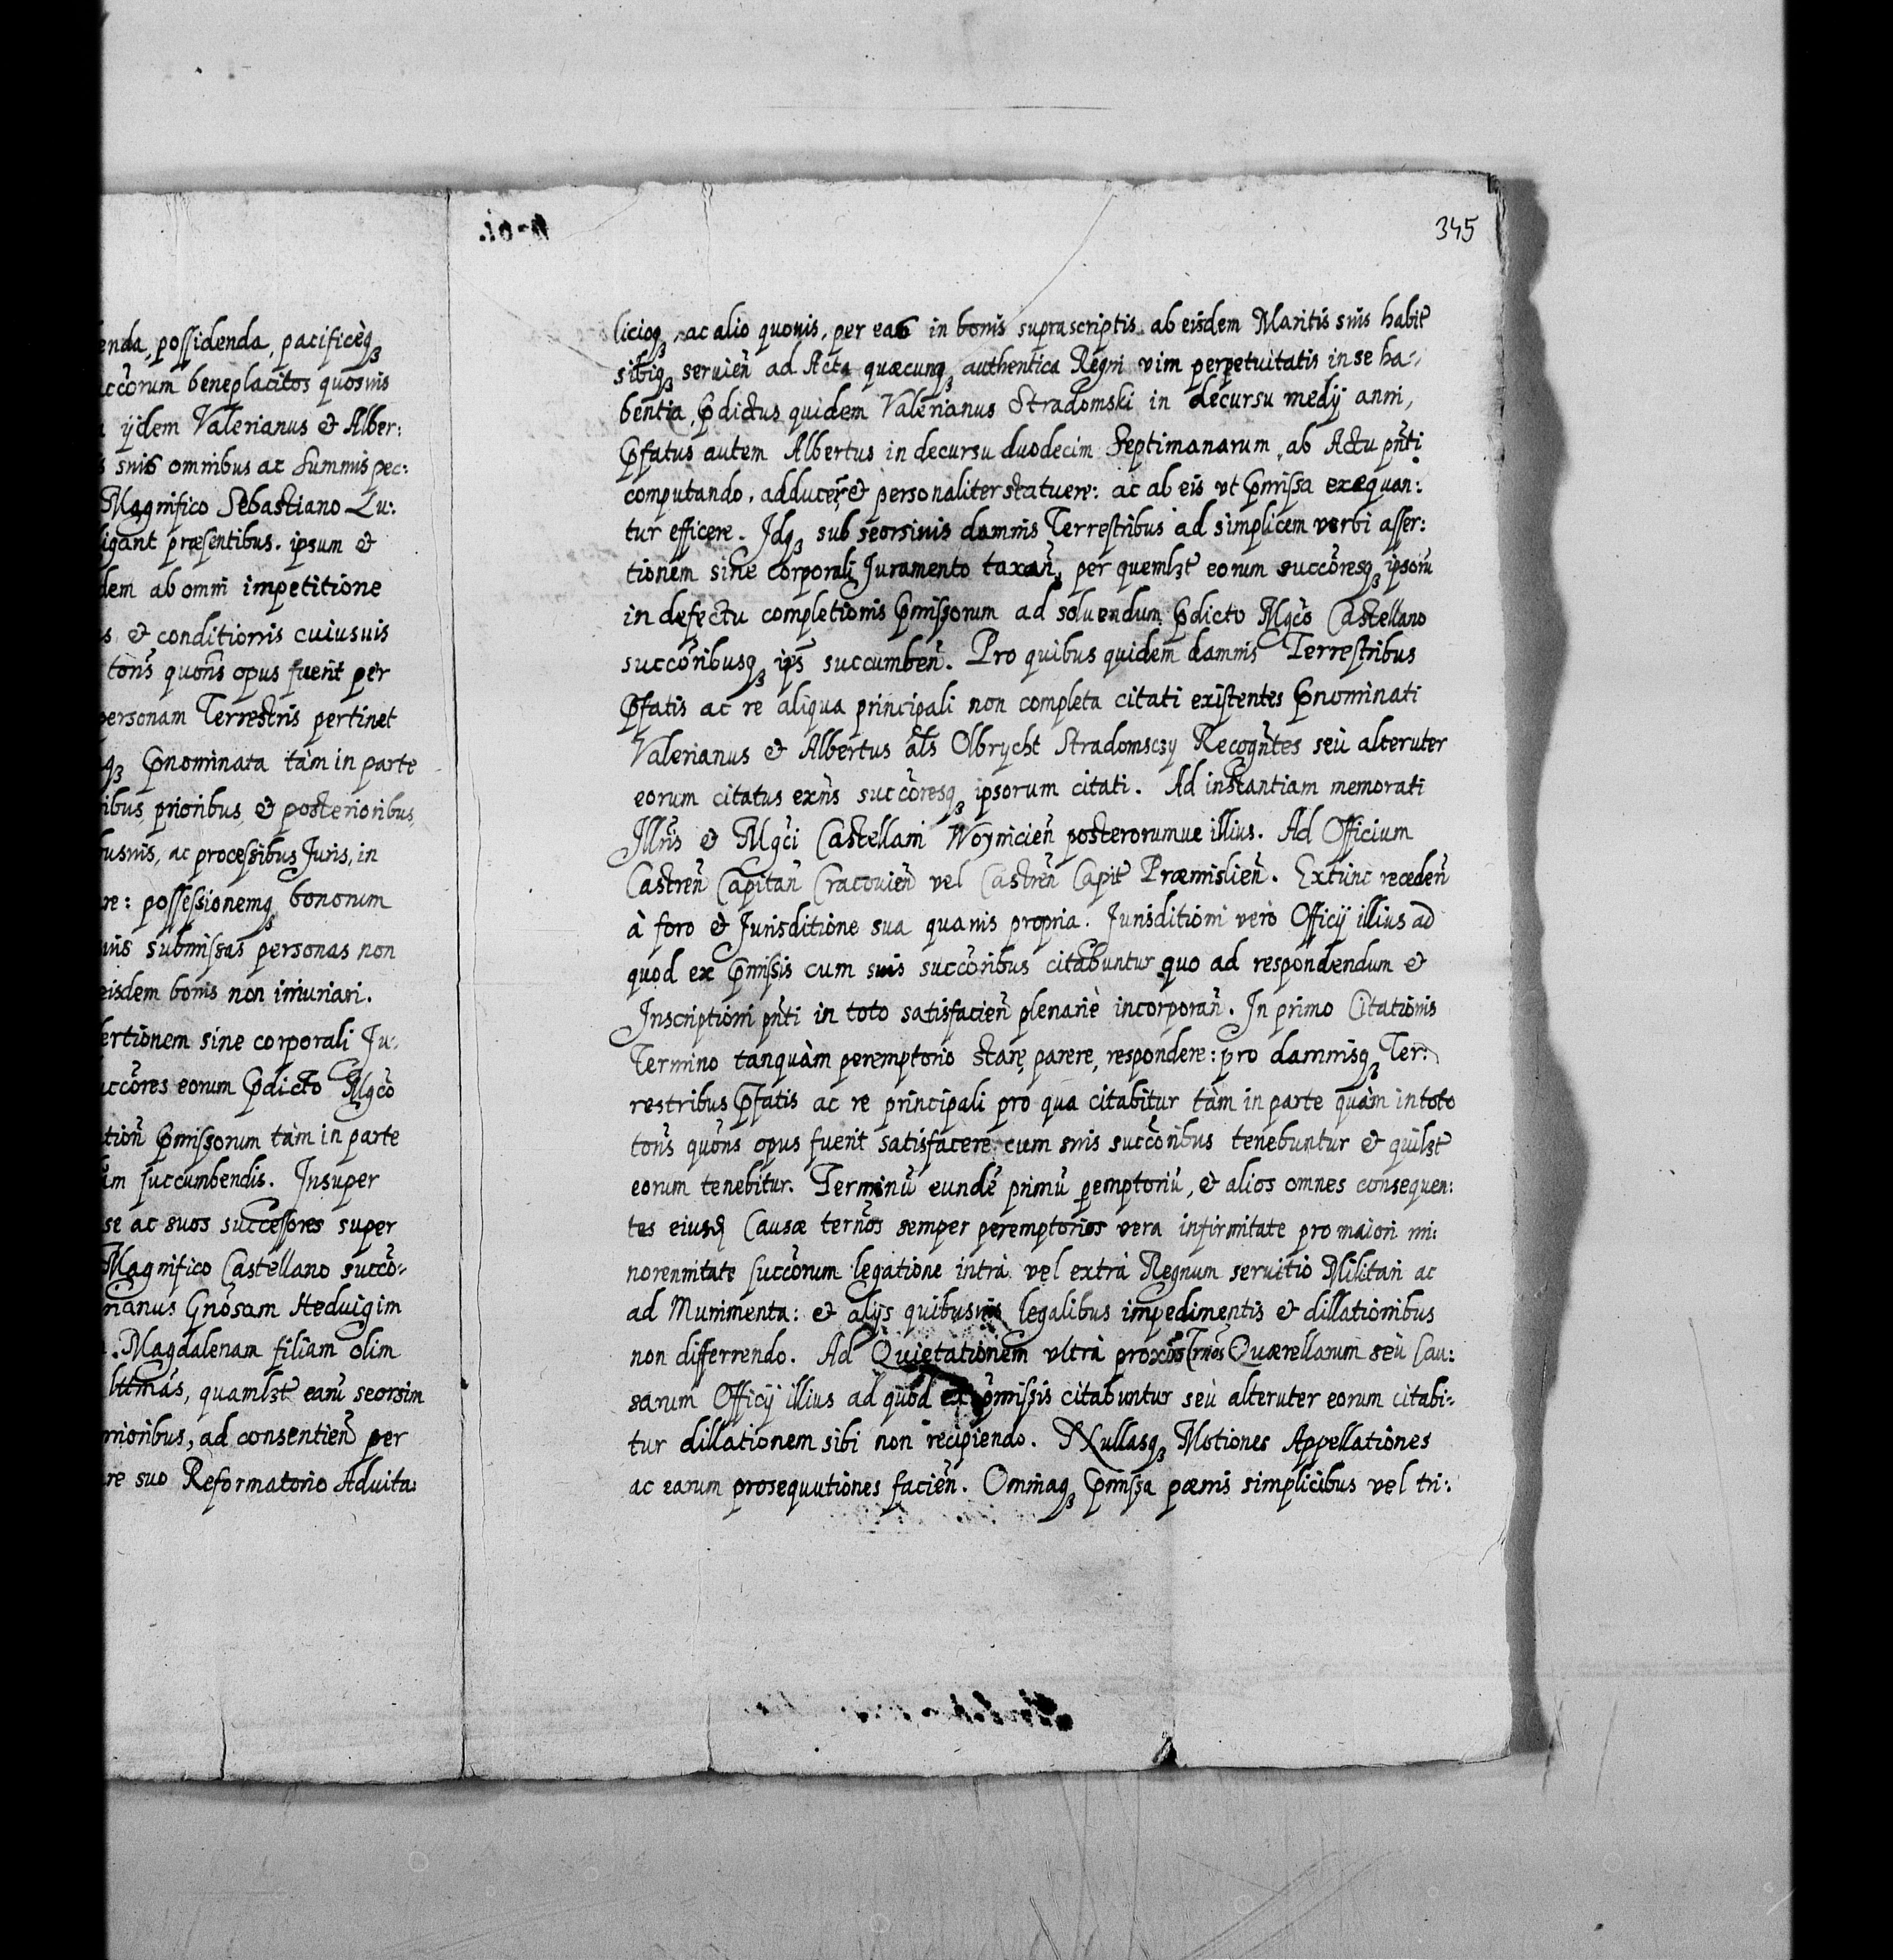 enda, possidenda, pacificèq3
uccõrum beneplacitos quosuis
ijdem Valerianus & Alber:
suis omnibus ac Summis pec:
Magnifico Sebastiano Lu:
ligant præsentibus. ipsum &
dem ab omni impetitione
s & conditionis cuiusuis
tõns quõns opus fuerit per
personam Terrestris pertinet
q3 Pnominata tàm in parte
ribus prioribus, & posterioribus,
busuis, ac processibus Juris, in
re: possessionemq3 bonorum
uis submissas personas non
eisdem bonis non iniuriari.
ertionem sine corporali Ju:
uccõres eorum Pdicto Mgcõ
tioñ Pmissorum tàm in parte
am succumbendis. Insuper
se ac suos successores super
Magnifico Castellano succõ-
rianus Gnõsam Heduigim
Magdalenam filiam olim
ltimas, quamlzt earũ seorsim
rioribus, ad consentieñ per
re suo Reformatorio Aduita:
345
licioq3, ac alio quouis, per eas in bonis suprascriptis ab eisdem Maritis suis habit
sibiq3 seruieñ ad Acta quæcunq3 authentica Regni vim perpetuitatis in se ha-
bentia, Pdictus quidem Valerianus Stradomski in decursu medij anni,
Pfatus autem Albertus in decursu duodecim Septimanarum, ab Actu pñti
computando, adducere & personaliter statuere: ac ab eis vt Pmissa exequan:
tur efficere. Jdq3 sub seorsiuis damnis Terrestribus ad simplicem verbi asser:
tionem sine corporali Juramento taxañ, per quemlzt eorum succõresq3 ipsorũ
in defectu completionis Pmissorum ad soluendum Pdicto Mgcõ Castellano
succõribusq3 ips̃ succumbeñ. Pro quibus quidem damnis Terrestribus
Pfatis ac re aliqua principali non completa citati existentes Pnominati
Valerianus & Albertus als̃ Olbrycht Stradomsczy Recogñtes seù alteruter
eorum citatus exñs succõresq3 ipsorum citati. Ad instantiam memorati
Jllris̃ & Mgcĩ Castellani Woynicieñ posterorumue illius. Ad Officium
Castreñ Capitañ Cracouieñ vel Castreñ Capit Præmislieñ. Extunc recedeñ
à foro & Jurisditione sua quauis propria. Jurisditioni verò Officij illius ad
quod ex Pmissis cum suis succõribus citabuntur quo ad respondendum &
Jnscriptioni pñti in toto satisfacieñ plenariè incorporañ. Jn primo Citationis
Termino tanquàm peremptorio stare, parere, respondere: pro damnisq3 Ter:
restribus Pfatis ac re principali pro qua citabitur tàm in parte quàm in toto
tõns quõns opus fuerit satisfacere cum suis succõribus tenebuntur & quilzt
eorum tenebitur. Terminũ eundẽ primũ pemptoriũ, & alios omnes consequen:
tes eiusd Causæ terños semper peremptorios vera infirmitate pro maiori mi:
norennitate succõrum legatione intrà vel extrà Regnum seruitio Militari ac
ad Munimenta: & alijs quibusuis legalibus impedimentis & dillationibus
non differrendo. Ad Quietationem vltrà proxõs Trnos Quærellarum seù Cau:
sarum Officij illius ad quod ex Pmissis citabuntur seù alteruter eorum citabi-
tur dillationem sibi non recipiendo. Nullasq3 Motiones Appellationes
ac earum prosequutiones facieñ. Omniaq3 Pmissa pœnis simplicibus vel tri: